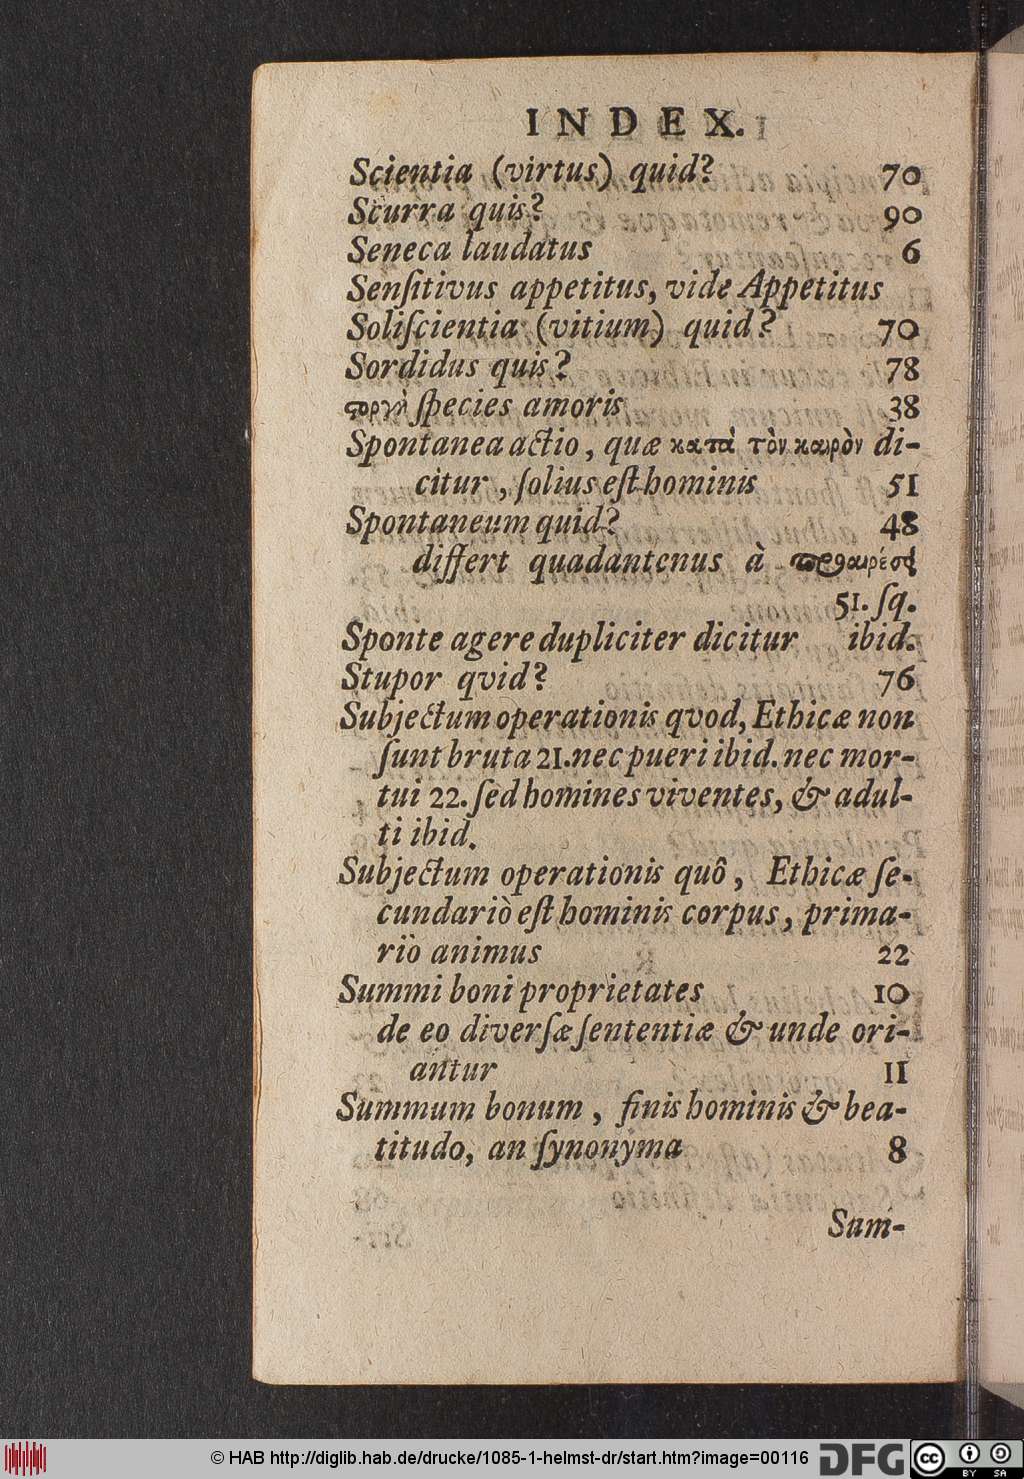 INDEX.
Scientia (virtus) quid? 70
Scurra quis? 90
Seneca laudatus 6
Senſitivus appetitus, vide Appetitus
Soliſcientia (vitium) quid? 70
Sordidus quis? 78
ϛοργὴ ſpecies amoris 38
Spontanea actio, quæ κατὰ τὸν καιρὸν di-
citur, ſolius eſt hominis 51
Spontaneum quid? 48
differt quadantenus à προαιρέσει
51. ſq.
Sponte agere dupliciter dicitur ibid.
Stupor qvid? 76
Subjectum operationis qvod, Ethicæ non
ſunt bruta 21. nec pueri ibid. nec mor-
tui 22. ſed homines viventes, & adul-
ti ibid.
Subjectum operationis quô, Ethicæ ſe-
cundariò eſt hominis corpus, prima-
riò animus 22
Summi boni proprietates 10
de eo diverſæ ſententiæ & unde ori-
antur 11
Summum bonum, finis hominis & bea-
titudo, an ſynonyma 8
Sum-
© HAB http://diglib.hab.de/drucke/1085-1-helmst-dr/start.htm?image=00116
DFG
cc
BY SA